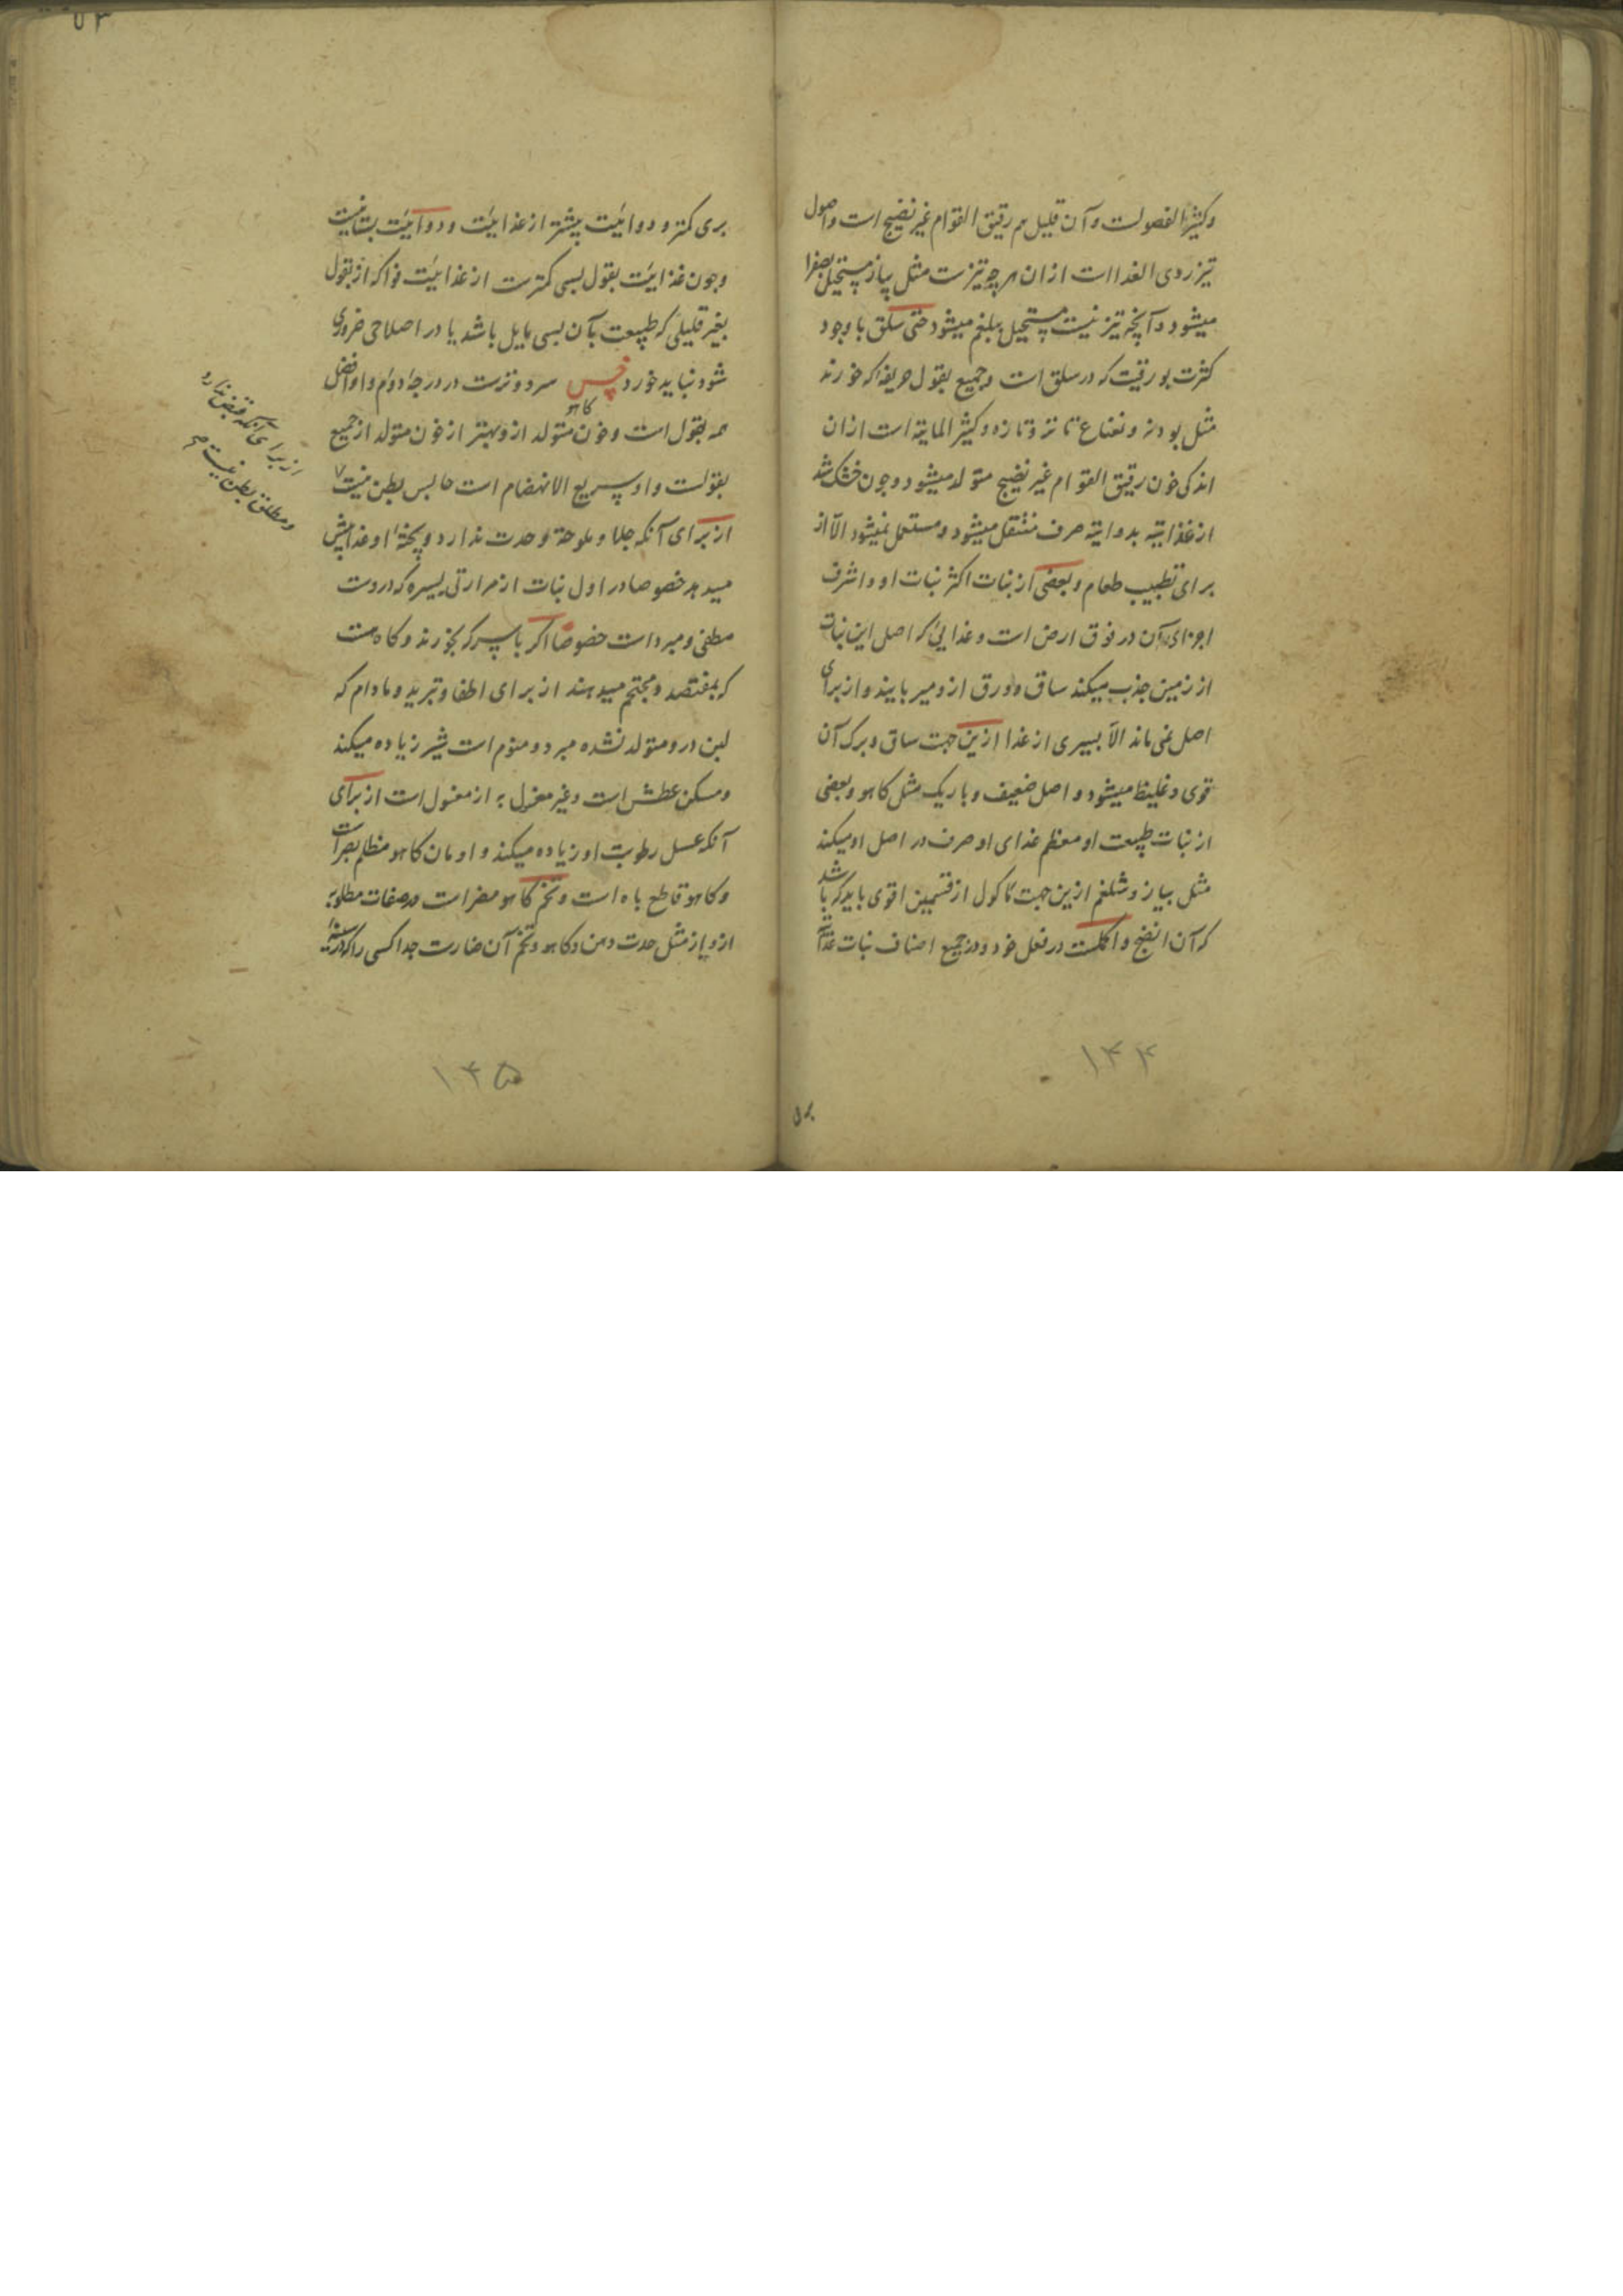 وکثیر الفضولست و آن قلیل هم رقیق القوام غیر نضیج است و اصول
تیز ردی الغذا است از ان هر چه تیزست مثل پیاز مستحیل بصفرا
میشود و آنچه تیز نیست مستحیل ببلغم میشود حتی سلق با وجود
کثرت بورقیت که در سلق است و جمیع بقول حریفه که خورند
مثل پودنه و نعناع تا تر و تازه و کثیر المائیة است ازان
اندکی خون رقیق القوام غیر نضیج متولد میشود و چون خشک شد
از غذائیة بدوائیة صرف منتقل میشود و مستعمل نمیشود الا از
برای تطییب طعام و بعضی از نبات اکثر نبات او و اشرف
اجزای آن در فوق ارض است و غذائی که اصل این نبات
از زمین جذب میکند ساق و ورق ازو میربایند و از برای
اصل نمی ماند الا یسیری از غذا ازین جهت ساق و برک آن
قوی و غلیظ میشود و اصل ضعیف و باریک مثل کاهو و بعضی
از نبات طبیعت او معظم غذای او صرف در اصل او میکند
مثل پیاز و شلغم ازین جهت ماکول از قسمین اقوی باید که باشد
که آن انضج و اکملست در فعل خود و در جمیع اصناف نبات غذائیت
۱۴۴
بری کمتر و دوائیت بیشتر از غذائیت و دوائیت بستانیست
و چون غذائیت بقول بسی کمترست از غذائیت فواکه از بقول
بغیر قلیلی که طبیعت بآن بسی مایل باشد یا در اصلاحی ضروری
شود نباید خورد خس سرد و ترست در درجهٔ دوم و او افضل
کاهو
همه بقول است و خون متولد ازو بهتر از خون متولد از جمیع
بقولست و او سریع الانهضام است حابس بطن نیست ۷
از برای آنکه قبض ندارد
و مطلق بطن نیست
از برای آنکه جلا و ملوحة و حدت ندارد و پختهٔ او غذا بیش
میدهد خصوصا در اول نبات از مرارتی یسیره که دروست
مطفی و مبرد است خصوصا اکر با سرکه بخورند و کاه هست
که بمفتصد و محتجم میدهند از برای اطفا و تبرید و مادام که
لبن درو متولد نشده مبرد و منوم است شیر زیاده میکند
و مسکن عطش است و غیر مغسول به از مغسول است از برای
آنکه غسل رطوبت او زیاده میکند و ادمان کاهو مظلم بصر است
و کاهو قاطع باه است و تخم کاهو مضر است در صفات مطلوبه
ازو باز مثل حدت ذهن و کاهو و تخم آن ضارست جدا کسی را که در سینهٔ
۱۴۵